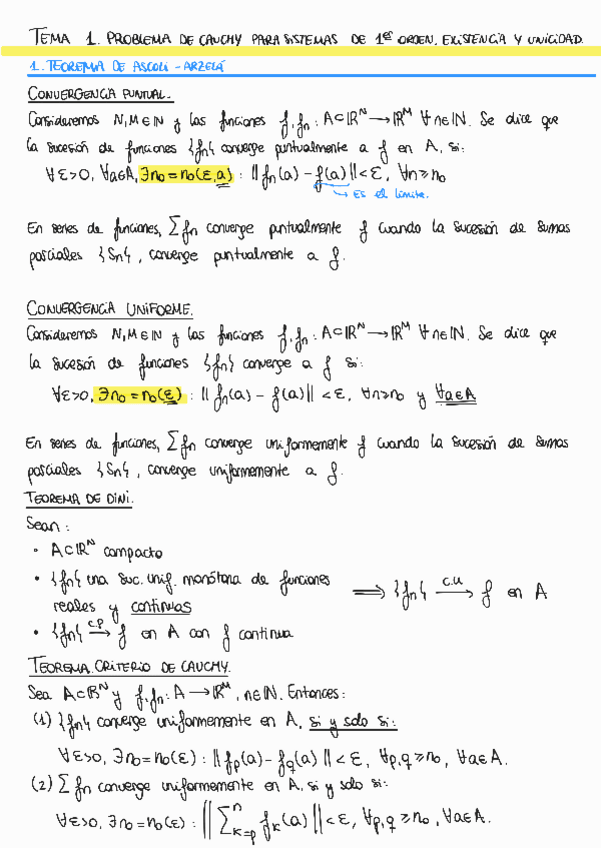 TEMA 1. PROBLEMA DE CAUCHY PARA SISTEMAS DE 1er ORDEN. EXISTENCIA Y UNICIDAD.
1. TEOREMA DE ASCOLI - ARZELÁ
CONVERGENCIA PUNTUAL.
Consideremos N,M∈ℕ y las funciones f,fn : A⊂ℝ^N → ℝ^M ∀n∈ℕ. Se dice que
la sucesión de funciones {fn} converge puntualmente a f en A, si:
∀ε>0, ∀a∈A, ∃n₀=n₀(ε,a) : ‖fn(a) - f(a)‖<ε, ∀n≥n₀
→ Es el límite.
En series de funciones, ∑fn converge puntualmente f cuando la sucesión de sumas
parciales {Sn}, converge puntualmente a f.
CONVERGENCIA UNIFORME.
Consideremos N,M∈ℕ y las funciones f,fn : A⊂ℝ^N → ℝ^M ∀n∈ℕ. Se dice que
la sucesión de funciones {fn} converge a f si:
∀ε>0, ∃n₀=n₀(ε) : ‖fn(a) - f(a)‖ < ε, ∀n≥n₀ y ∀a∈A
En series de funciones, ∑fn converge uniformemente f cuando la sucesión de sumas
parciales {Sn}, converge uniformemente a f.
TEOREMA DE DINI.
Sean:
• A⊂ℝ^N compacto
• {fn} una suc. unif. monótona de funciones
reales y continuas
• {fn} →(c.p) f en A con f continua
⟹ {fn} →(c.u) f en A
TEOREMA. CRITERIO DE CAUCHY.
Sea A⊂ℝ^N y f,fn : A → ℝ^M, n∈ℕ. Entonces:
(1) {fn} converge uniformemente en A, si y solo si:
∀ε>0, ∃n₀=n₀(ε) : ‖fp(a) - fq(a)‖<ε, ∀p,q≥n₀, ∀a∈A.
(2) ∑fn converge uniformemente en A, si y solo si:
∀ε>0, ∃n₀=n₀(ε) : ‖∑_{k=p}^{n} fk(a)‖<ε, ∀p,q≥n₀, ∀a∈A.